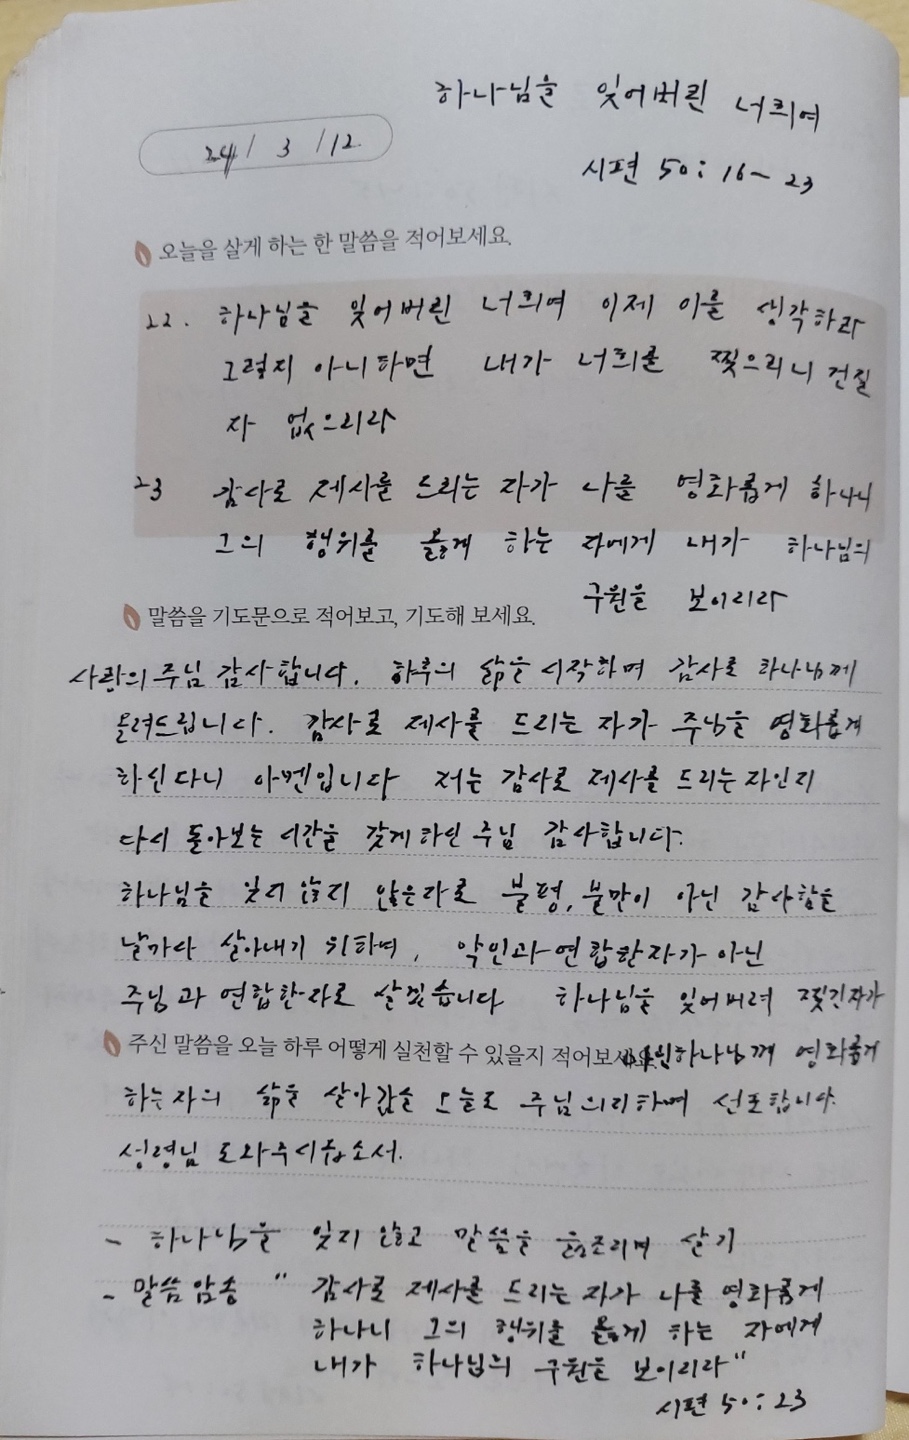 하나님을 잊어버린 너희여
24 / 3 / 12.
시편 50 : 16 ~ 23
오늘을 살게 하는 한 말씀을 적어보세요.
22. 하나님을 잊어버린 너희여 이제 이를 생각하라
그렇지 아니하면 내가 너희를 찢으리니 건질
자 없으리라
23 감사로 제사를 드리는 자가 나를 영화롭게 하나니
그의 행위를 옳게 하는 자에게 내가 하나님의
구원을 보이리라
말씀을 기도문으로 적어보고, 기도해 보세요.
사랑의 주님 감사합니다. 하루의 삶을 시작하며 감사로 하나님께
올려드립니다. 감사로 제사를 드리는 자가 주님을 영화롭게
하신다니 아멘입니다 저는 감사로 제사를 드리는자인지
다시 돌아보는 시간을 갖게하신 주님 감사합니다.
하나님을 잊지 않은자로 불평, 불만이 아닌 감사함을
날마다 살아내기 위하여, 악인과 연합한자가 아닌
주님과 연합한자로 살겠습니다 하나님을 잊어버려 찢긴자가
주신 말씀을 오늘 하루 어떻게 실천할 수 있을지 적어보세요.
하나님께 영화롭게
하는자의 삶을 살아감을 오늘도 주님의지하여 선포합니다.
성령님 도와주시옵소서.
- 하나님을 잊지 않고 말씀을 읊조리며 살기
- 말씀암송 " 감사로 제사를 드리는 자가 나를 영화롭게
하나니 그의 행위를 옳게 하는 자에게
내가 하나님의 구원을 보이리라"
시편 50 : 23